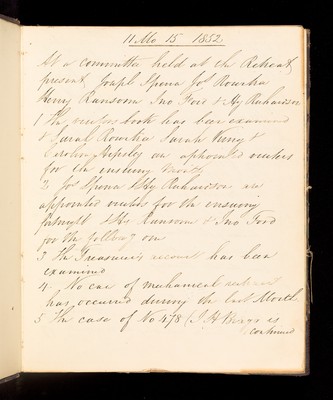 11 Mo 15 1852
At a committee held at the Retreat
present Joseph Spence Jos Rowntree
Henry Ransome Jno Ford & Hy Richardson
1 The visitors book has been examined
& Sarah Rowntree Sarah &
Caroline are appointed visitors
for the ensuing Month
2 Jos Spence & Hy Richardson are
appointed visitors for the ensuing
fortnight & Hy Ransome & Jno Ford
for the following one
3 The Treasurers account has been
examined
4 No case of mechanical restraint
has occurred during the last Month
5 The case of No 478 (J H is
continued